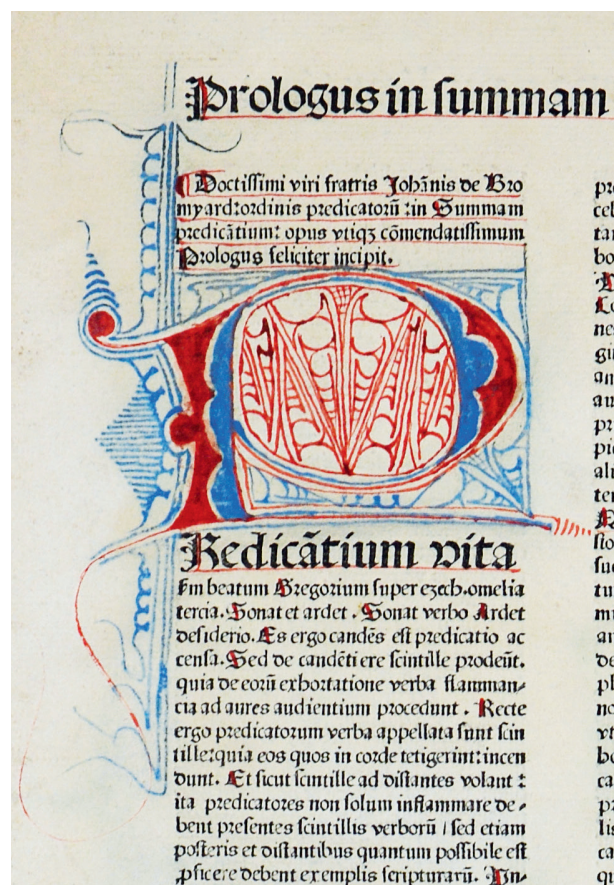 Prologus in summam
Doctissimi viri fratris Johānis de Bro
myard:ordinis predicatorū :in Summam
predicātium: opus vtiqꝫ cōmendatissimum
Prologus feliciter incipit.
P
Redicātium vita
ſm beatum Gregorium super ezech.omelia
tercia. Sonat et ardet. Sonat verbo Ardet
desiderio. Es ergo candēs est predicatio ac
censa. Sed de candēti ere scintille prodeūt.
quia de eorū exhortatione verba flamman⸗
cia ad aures audientium procedunt. Recte
ergo predicatorum verba appellata sunt scin
tille:quia eos quos in corde tetigerint:incen
dunt. Et sicut scintille ad distantes volant :
ita predicatores non solum inflammare de⸗
bent presentes scintillis verborū / sed etiam
posteris et distantibus quantum possibile est
ꝓficere debent exemplis scripturarū. In⸗